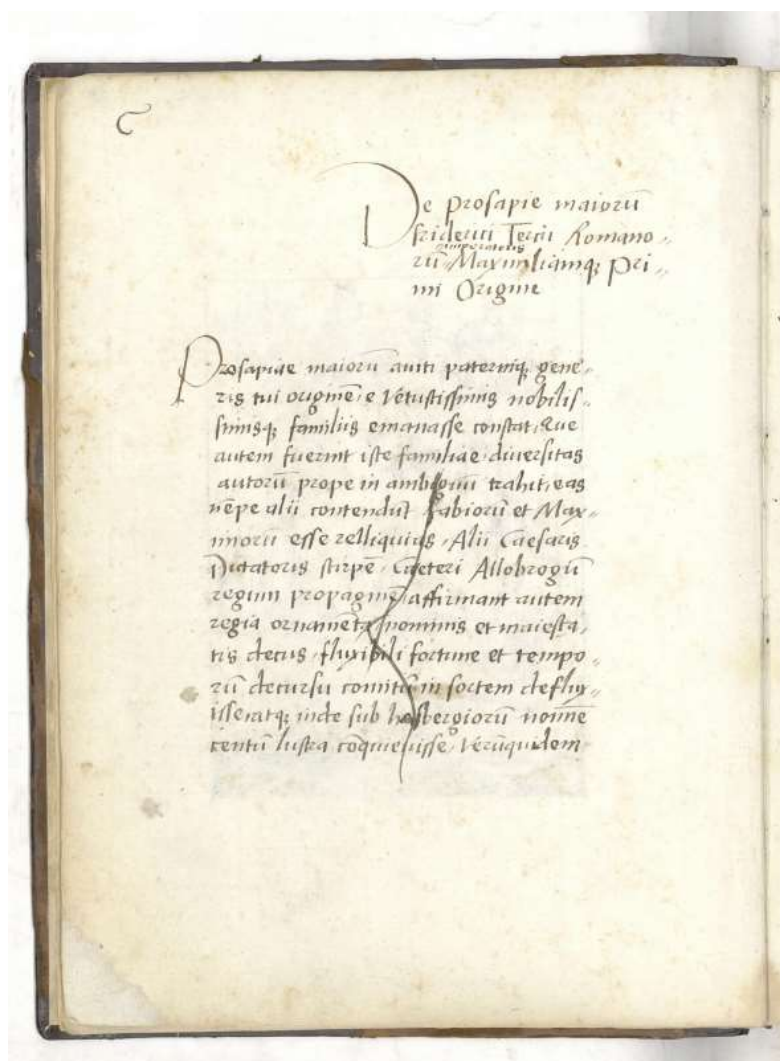 C
De prosapie maiorū
friderici Tercii Romano„
imperatoris
rū Maximilianiq; pri„
mi Origine
Prosapiae maiorū auiti paterniq; gene„
ris tui originē, e vetustissimis nobilis„
simisq; familiis emanasse constat, Que
autem fuerint iste familiae, diuersitas
autorū prope in ambiguū trahit, eas
nēpe alii contendūt fabiorū et Max„
imorū esse relliquias, Alii Caesaris
Dictatoris stirpē, Caeteri Allobrogū
regum propaginē, affirmant autem
regia ornamēta, nominis et maiesta,
tis decus, fluxibili fortune et tempo„
rū decursu comitū in sortem deflux„
isse atq; inde sub habsbergiorū nomīe
centū lustra cōquieuisse, verūquidem